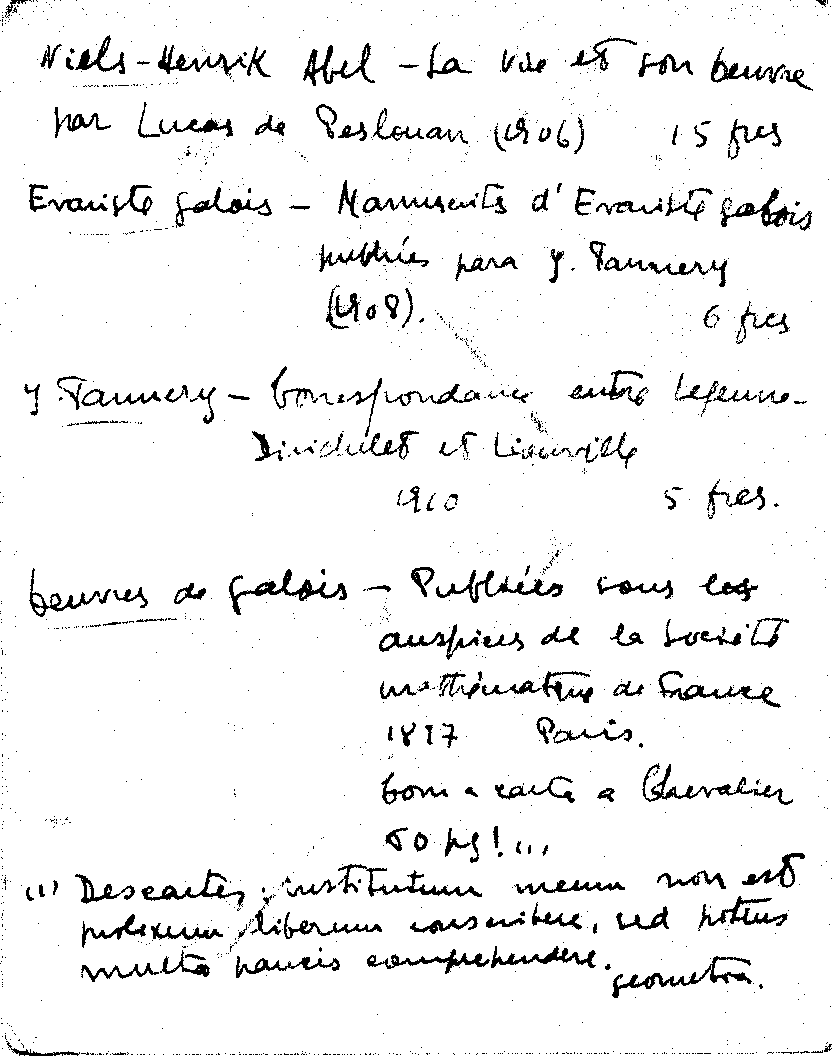 Niels-Henrik Abel - La vie et son oeuvre
par Lucas de Peslouan (1906) 15 frcs
Evariste Galois - Manuscrits d'Evariste Galois
publiés para J. Tannery
(1908). 6 frcs
J. Tannery - Correspondance entre Lejeune-
Dirichlet et Liouville
1910 5 frcs.
Oeuvres de Galois - Publiées sous les
auspices de la Société
mathématique de France
1897 Paris.
Com a carta a Chevalier
60 pg! ...
(1) Descartes, institutum meum non est
prolixum librum conscribere, sed potius
multa paucis comprehendere.
Geometria.